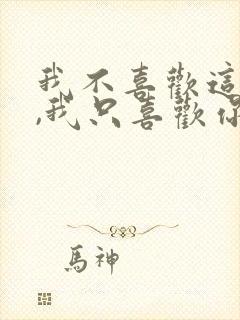 我不喜歡這
,我只喜歡你
馬神